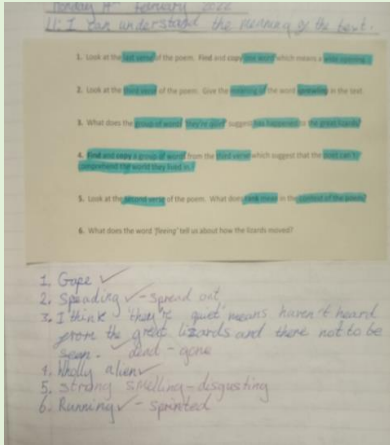 Monday 14th February 2022
L.I: I can understand the meaning of the text.
1. Look at the last verse of the poem. Find and copy one word which means a wide opening.
2. Look at the third verse of the poem. Give the meaning of the word sprawling in the text.
3. What does the group of words 'they're quiet' suggest has happened to the great lizards?
4. Find and copy a group of words from the third verse which suggest that the poet can't comprehend the world they lived in.
5. Look at the second verse of the poem. What does rank mean in the context of the poem?
6. What does the word 'fleeing' tell us about how the lizards moved?
1. Gape
2. Spreading - spread out
3. I think 'they're quiet' means haven't heard
from the great lizards and there not to be
seen. dead - gone
4. Wholly alien
5. strong smelling - disgusting
6. Running - sprinted